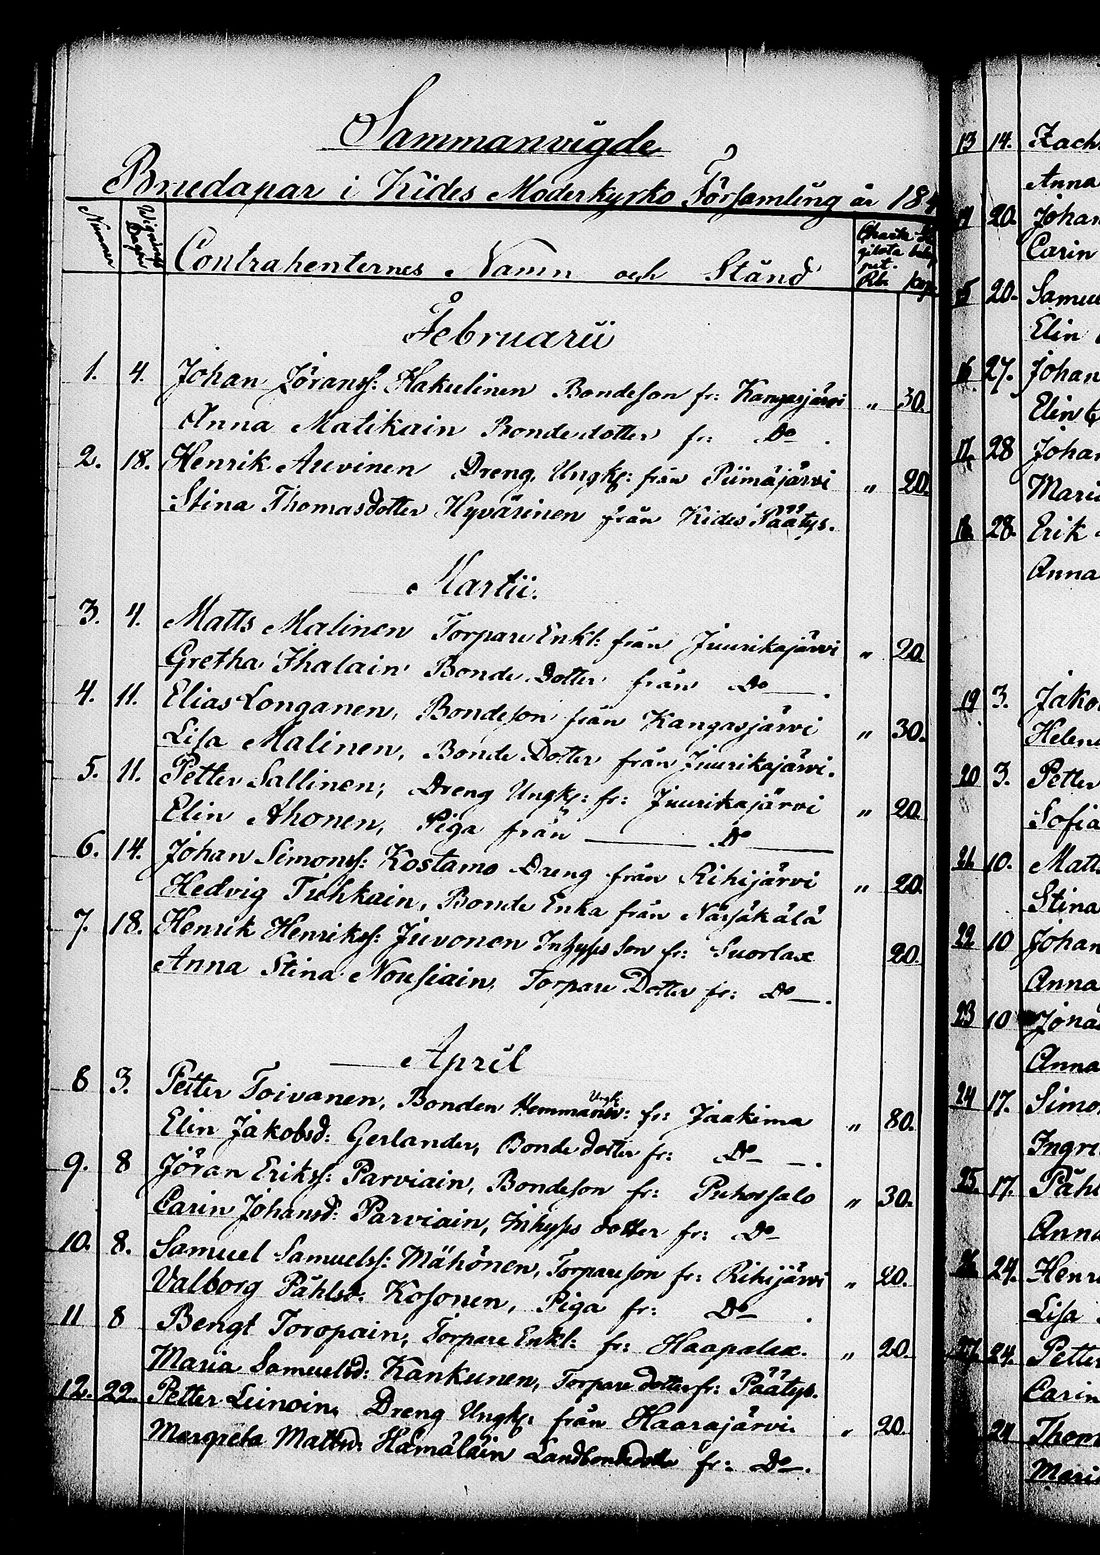 Sammanvigde
Brudapar i Kides Moderkyrko Församling år 184
Nummer
Wignings Dagar
Contrahenternes Namn och Stånd
Charta
Rb. kop.
Februarii
1. 4. Johan Jöranss: Hakulinen Bondeson fr: Kangasjärvi " 30.
Anna Matikain Bondedotter fr: Do.
2. 18. Henrik Auvinen Dreng, Ungk: från Piimäjärvi " 20.
Stina Thomasdotter Hyvärinen från Kides Päätys.
Martii.
3. 4. Matts Malinen Torpare Enkl: från Juurikajärvi " 20.
Gretha Ihalain Bonde Dotter från Do.
4. 11. Elias Longanen, Bondeson från Kangasjärvi " 30.
Lisa Malinen, Bonde Dotter från Juurikajärvi.
5. 11. Petter Sallinen, Dreng Ungk: fr: Juurikajärvi " 20.
Elin Ahonen, Piga från Do
6. 14. Johan Simonss: Kostamo Dreng från Rihijärvi " 20.
Hedvig Tuhkain, Bonde Enka från Närsäkälä
7. 18. Henrik Henrikss: Juvonen Inhyses Son fr: Suorlax 20.
Anna Stina Nousiain, Torpare Dotter fr: Do.
April
8 3. Petter Toivanen, Bonden fr: Jaakima " 80.
Elin Jakobsd: Gerlander, Bonde dotter fr: Do.
9. 8 Jöran Erikss: Parviain, Bondeson fr: Puhossalo " 30.
Carin Johansd: Parviain, Inhyses dotter fr: Do
10. 8. Samuel Samuelss: Mähönen, Torpareson fr: Rihijärvi " 20.
Valborg Påhlsd: Kosonen, Piga fr: Do.
11 8 Bengt Toropain, Torpare Enkl: fr: Haapalax. " 20.
Maria Samuelsd: Kankunen, Torpare dotter fr: Päätys.
12. 22. Petter Dreng Ungk: från Haarajärvi. " 20.
Margreta Mattsd: Hämäläin Landbondedotter fr: Do.
13 14. Zach
Anna
20. Johan
Carin
15 20. Samue
Elin
16 27. Johan
Elin
17. 28 Johan
Maria
18. 28. Erik
Anna
19 3. Jako
Helena
20 3. Petter
Sofia
21 10. Matts
Stina
22 10 Johan
Anna
23 10 Jöna
Anna
24 17. Simo
Ingri
25. 17. Påhl
Anna
26 24. Henr
Lisa
27. 24. Petter
Carin
24 Thom
Mari